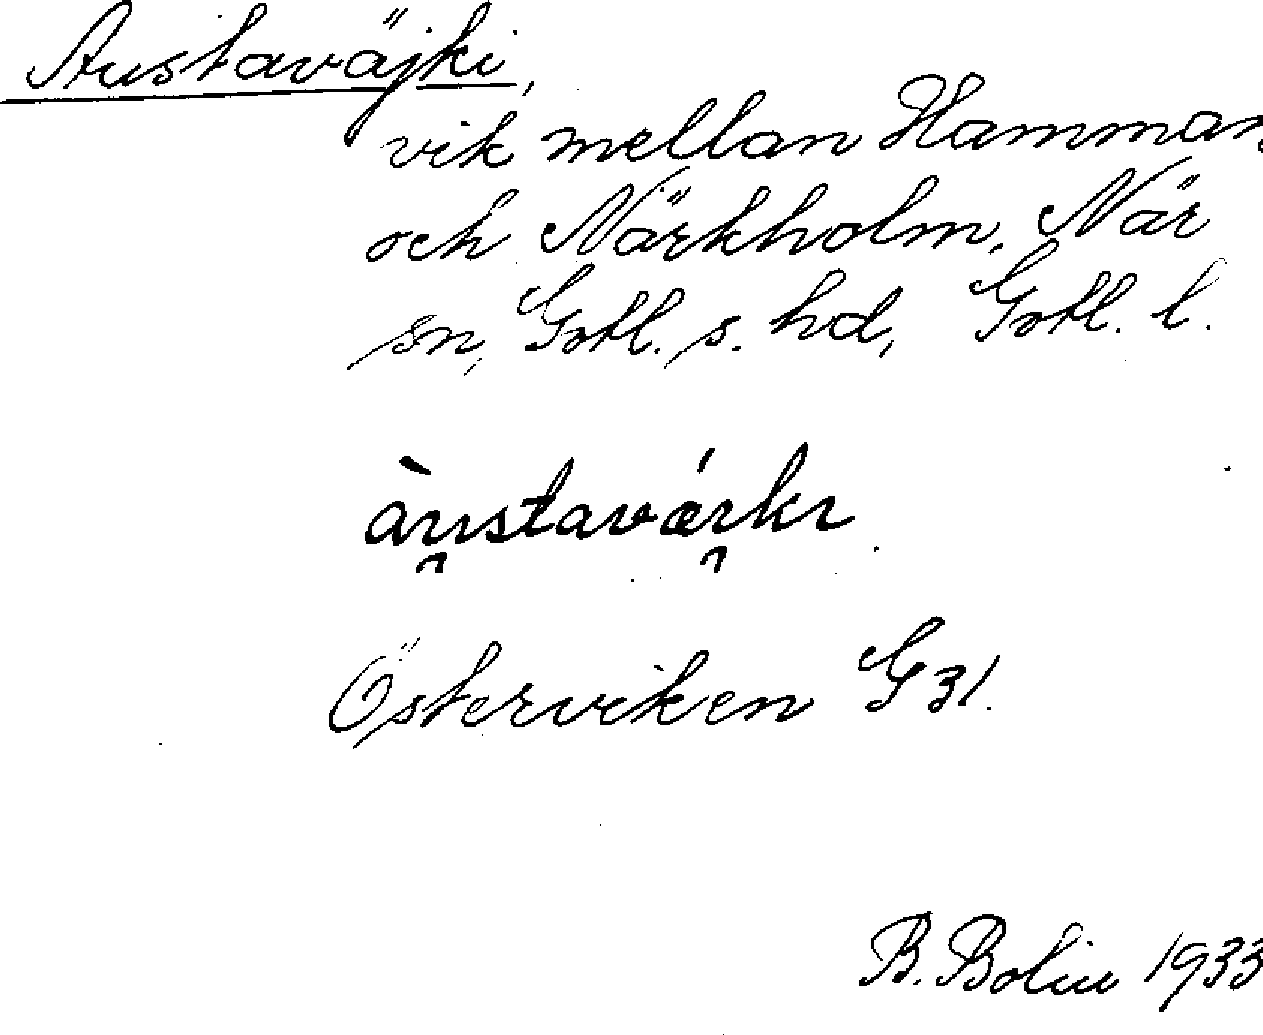 Austaväjki,
vik mellan Hamman
och Närkholm, När
sn, Gotl. s. hd, Gotl. l.
Österviken G 31.
B. Bolin 1933